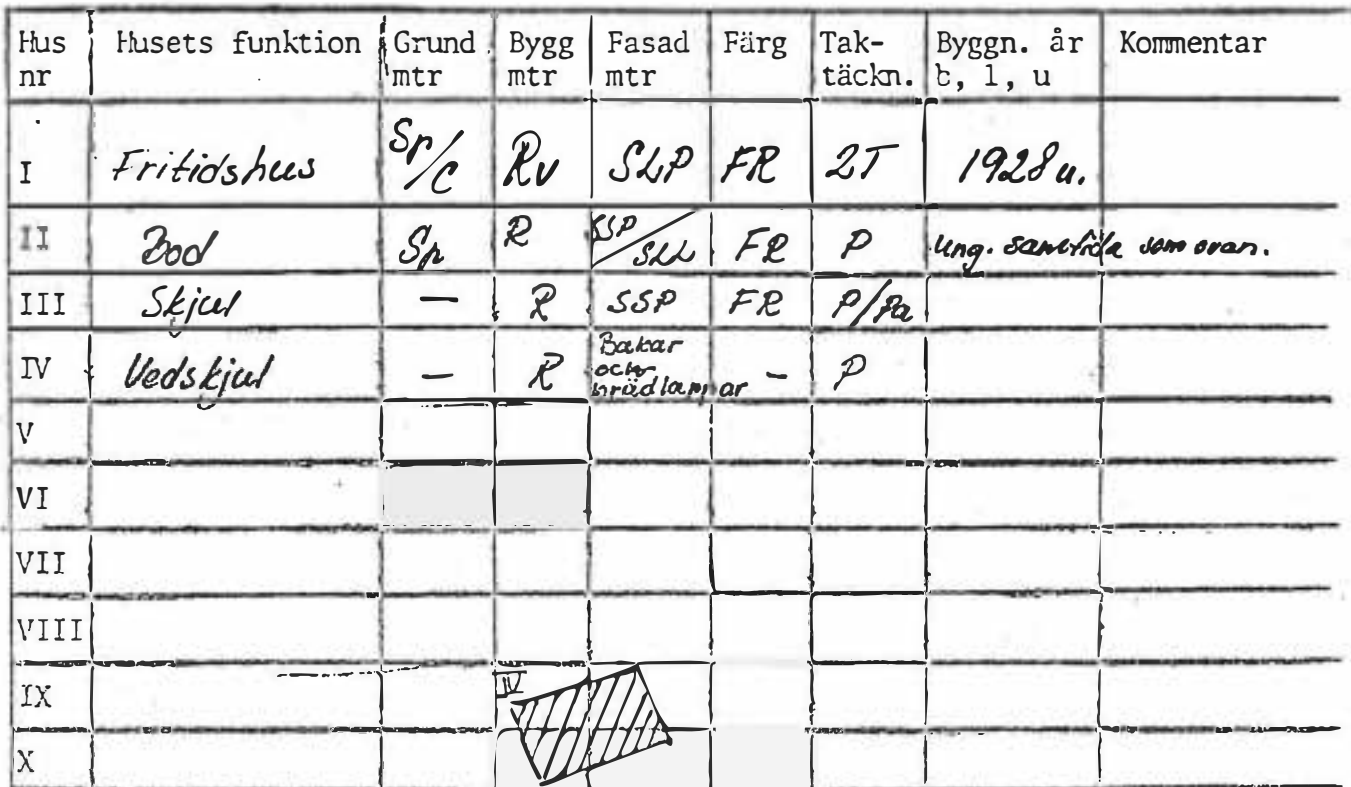 Hus nr | Husets funktion | Grund mtr | Bygg mtr | Fasad mtr | Färg | Tak-täckn. | Byggn. år b, l, u | Kommentar
I | Fritidshus | Sp/C | Rv | SLP | FR | 2T | 1928 u.
II | Bod | Sp | R | SSP/SLL | FR | P | ung. samtida som ovan.
III | Skjul | — | R | SSP | FR | P/Pa
IV | Vedskjul | — | R | Bakar och | - | P
V
VI
VII
VIII
IX | IV
X